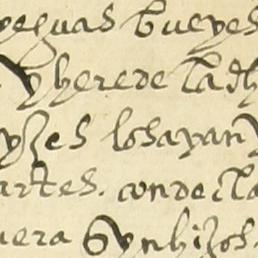 yeguas bueyes
y herede la dh
yzes los ayan y
artes. conde cla
uera Gynhijos.